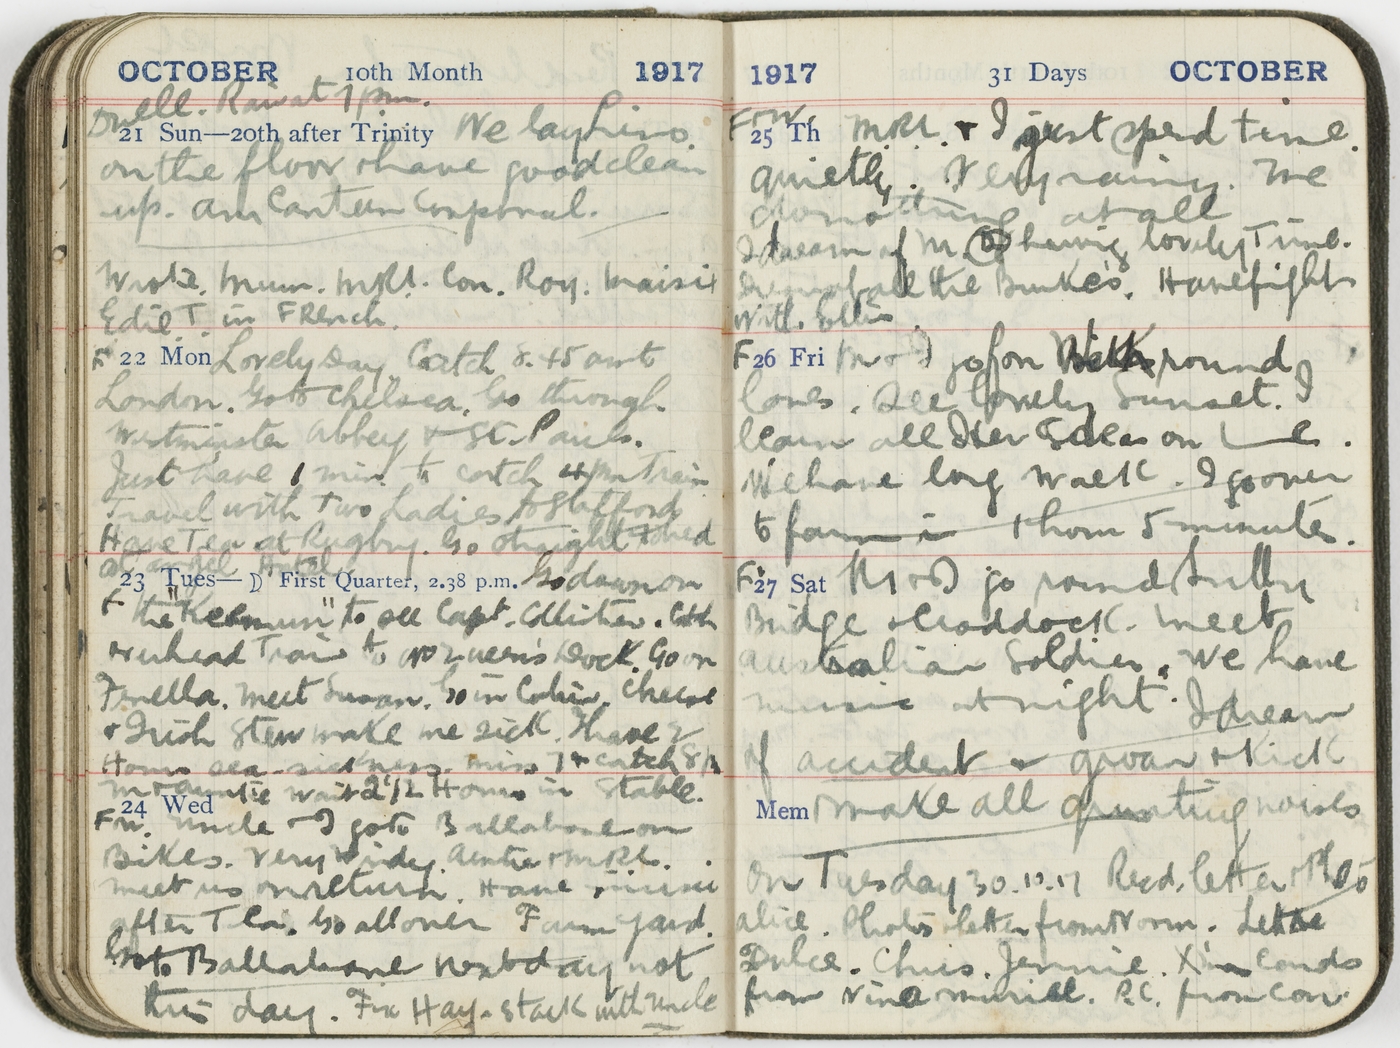 OCTOBER 10th Month 1917
Dwell. Raid at 7pm.
21 Sun—20th after Trinity We lay Lino
on the floor & have good clean
up. am Canteen Corporal.
Wrote. Mum. MRt. Con. Roy. Maisie
Edie T. in French.
F 22 Mon Lovely Day. Catch 8.45 am to
London. Go to Chelsea. Go through
Westminster Abbey & St. Pauls.
Just have 1 min. to catch 4pm Train
Travel with two Ladies to Stafford
Have Tea at Rugby. Go straight to bed
at Hotel.
23 Tues— ☽ First Quarter, 2.38 p.m. Go down on
F the "Keemun" to see Capt. Collister. Catch
overhead Train to Queen's Dock. Go on
Fenella. meet Susan. Go in Cabin. Cheese
& Irish Stew make me sick. I have 2
Hours sea-sickness. miss 7 & catch 8/
M & auntie wait 2 1/2 Hours in Stable.
24 Wed
Fine. Uncle & I go to Ballabane on
Bikes. Very Windy. Auntie & MRt.
meet us on return. Have music
after Tea. Go all over Farm yard.
Go to Ballabane next day not
this day. Fix Hay-stack with Uncle
1917 31 Days OCTOBER
25 Th MRt. & I just spend time
quietly. Very rainy. We
do nothing at all
I dream of M. D having lovely Time.
all the Burke's. Have fights
with Ellis
F 26 Fri M & I go for Walk round
lanes. See lovely Sunset. I
learn all Her Ideas on L—e.
We have long walk. I go over
to farm in 1 hour 5 minutes.
F 27 Sat M & I go round Sulby
Bridge & Craddock. Meet
Australian Soldier. We have
music at night. I dream
of accident & groan & Kick
Mem make all grunting noises
On Tuesday 30.10.17 Recd. letter &
Alice. Photos & letter from Norm. Letter
Dulce. Chris. Jennie. Xmas Cards
from Nina & Muriel. P.C. from Con.